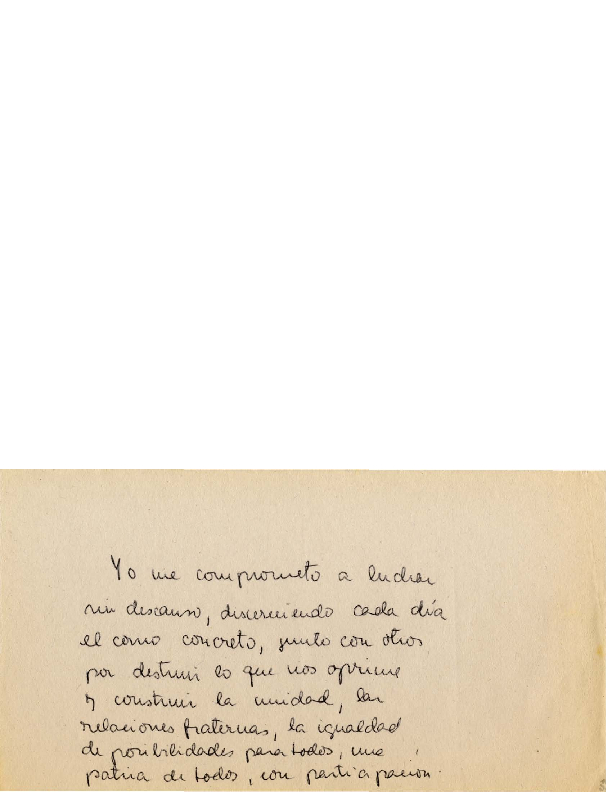 Yo me comprometo a luchar
sin descanso, discerniendo cada día
el como concreto, junto con otros
por destruir lo que nos oprime
y construir la unidad, las
relaciones fraternas, la igualdad
de posibilidades para todos, una
patria de todos, con participacion.